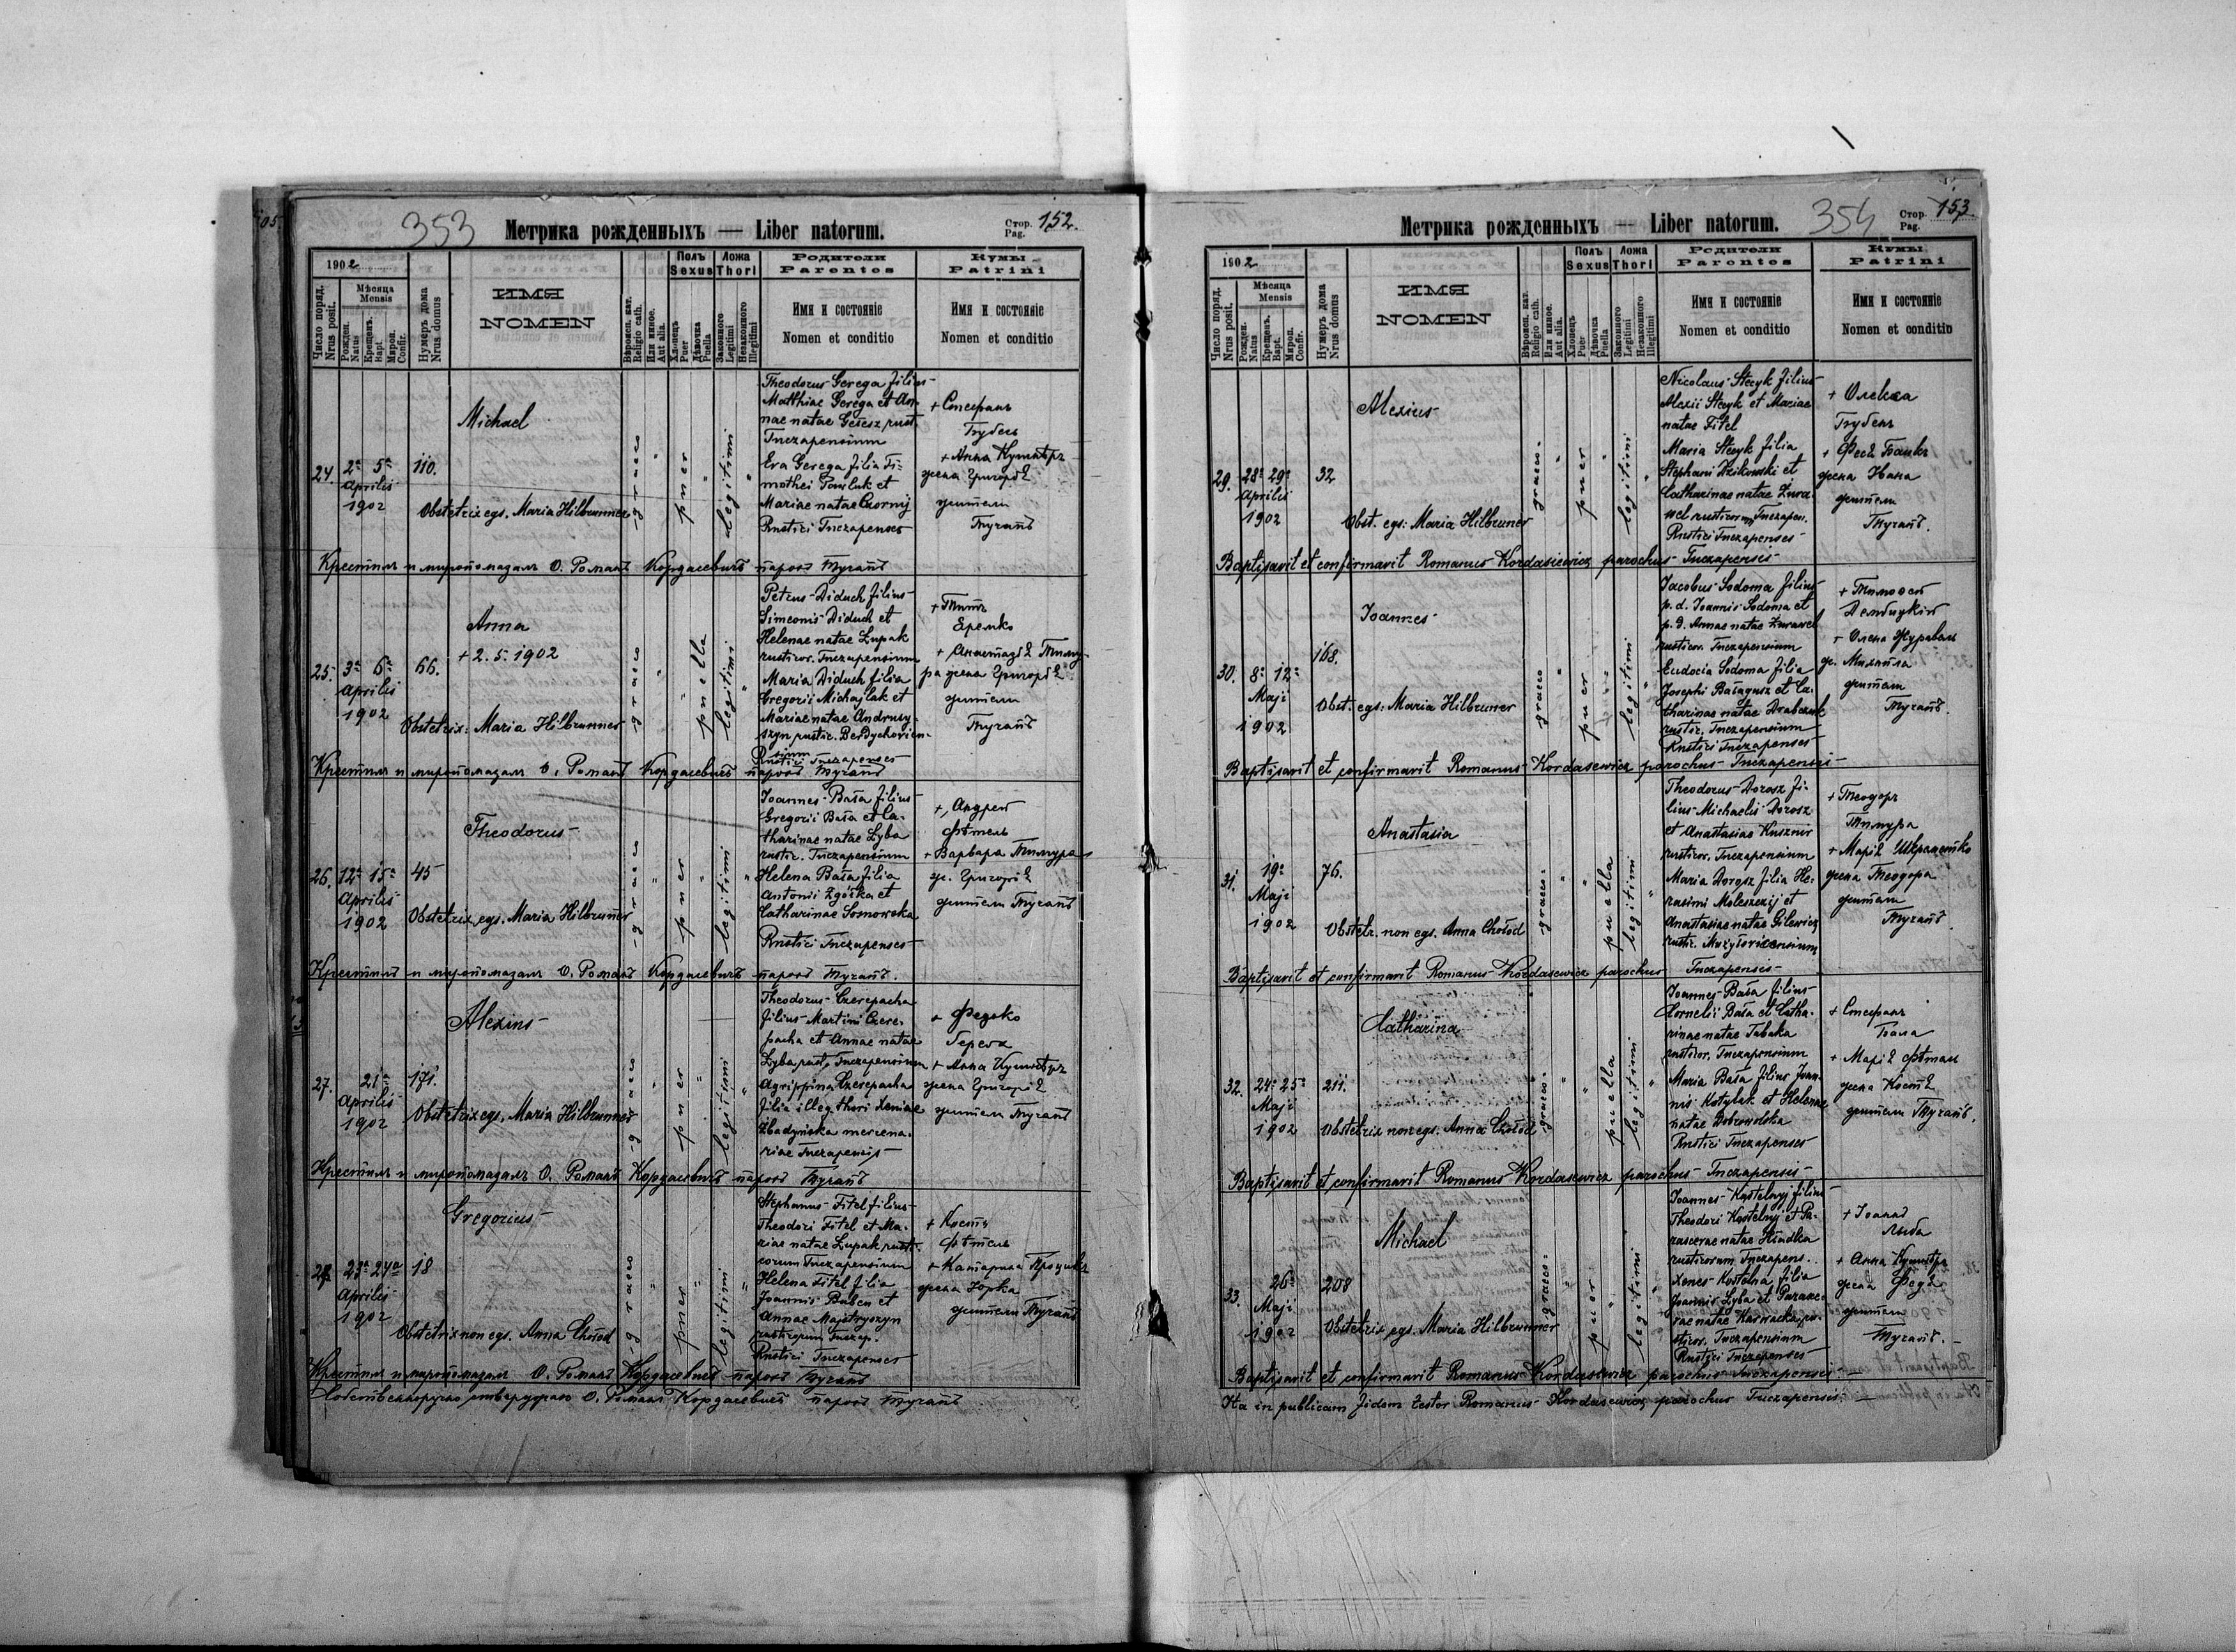 353
Метрика рожденныхъ — Liber natorum.
Стор. Pag. 152.
1902
Число поряд. Nrus posit.
Мѣсяца Mensis
Рожден. Natus
Крещенъ. Bapt.
Миров. Confir.
Нумеръ дома Nrus domus
ИМЯ
NOMEN
Вѣроисп. кат. Religio cath.
Или иное. Aut alia.
Полъ Sexus
Хлопецъ Puer
Дѣвочка Puella
Ложа Thori
Законного Legitimi
Незаконного Illegitimi
Родители
Parentes
Имя и состояніе
Nomen et conditio
Кумы
Patrini
Имя и состояніе
Nomen et conditio
24.
2a 5a
Aprilis
1902
110.
Michael
Obstetrix egs. Maria Hilbrunner
graeco
puer
legitimi
Theodorus Gerega filius
Matthiae Gerega et An-
nae natae rust.
Tuczapensium
Eva Gerega filia Ti-
mothei Pawluk et
Mariae natae Czornij
Rustici Tuczapenses
+ Стефанъ
+ Анна Кушнѣръ
жена Григорія
жители
Тучапъ
Крестилъ и миропомазалъ О. Романъ Кордасевичъ парохъ Тучапъ
25.
3a 6a
Aprilis
1902
66.
Anna
+ 2.5.1902
Obstetrix: Maria Hilbrunner
graeco
puella
legitimi
Petrus Diduch filius
Simeonis Diduch et
Helenae natae Łupak
rusticor. Tuczapensium
Maria Diduch filia
Gregorii Michajlak et
Mariae natae Andrusy-
szyn rustic. Berdychovien-
sium
Rustici Tuczapenses
Еремко
жена Григорія
жители
Тучапъ
Крестилъ и миропомазалъ О. Романъ Кордасевичъ парохъ Тучапъ
26.
12a 15a
Aprilis
1902
45
Theodorus
Obstetrix egs. Maria Hilbrunner
graeco
puer
legitimi
Joannes Bała filius
Gregorii Bała et Ca-
tharinae natae Lyba
rustic. Tuczapensium
Helena Bała filia
Antonii Zgórka et
Catharinae Sosnowska
Rustici Tuczapenses
+ Андрей
Фѣтель
+ Варвара Тимура
ж. Григорія
жители Тучапъ
Крестилъ и миропомазалъ О. Романъ Кордасевичъ парохъ Тучапъ.
27.
21a
Aprilis
1902
171.
Alexius
Obstetrix egs. Maria Hilbrunner
graeco
puer
legitimi
Theodorus Czerepacha
filius Martini Czere-
pacha et Annae natae
Lyba rust. Tuczapensium
Agrippina Czerepacha
filia illeg. thori Xeniae
Zbadyńska mercena-
riae Tuczapensis
+ Федько
Герега
+ Анна Кушнѣръ
жена Григорія
жители Тучапъ
Крестилъ и миропомазалъ О. Романъ Кордасевичъ парохъ Тучапъ
28.
23a 24a
Aprilis
1902
18
Gregorius
Obstetrix non egs. Anna Chołod
graeco
puer
legitimi
Stephanus Fitel filius
Theodori Fitel et Ma-
riae natae Łupak rusti-
corum Tuczapensium
Helena Fitel filia
Joannis Buben et
Annae Majstryszyn
rusticorum Tuczap.
Rustici Tuczapenses
+ Кость
Фѣтель
+ Катарина Процикъ
жена Юрка
жители Тучапъ
Крестилъ и миропомазалъ О. Романъ Кордасевичъ парохъ Тучапъ
Собственноручно утверждаю О. Романъ Кордасевичъ парохъ Тучапъ
354
Метрика рожденныхъ — Liber natorum.
Стор. Pag. 153
1902
Число поряд. Nrus posit.
Мѣсяца Mensis
Рожден. Natus
Крещенъ. Bapt.
Миров. Confir.
Нумеръ дома Nrus domus
ИМЯ
NOMEN
Вѣроисп. кат. Religio cath.
Или иное. Aut alia.
Полъ Sexus
Хлопецъ Puer
Дѣвочка Puella
Ложа Thori
Законного Legitimi
Незаконного Illegitimi
Родители
Parentes
Имя и состояніе
Nomen et conditio
Кумы
Patrini
Имя и состояніе
Nomen et conditio
29.
28a 29a
Aprilis
1902
32
Alexius
Obst. egs: Maria Hilbruner
graeco
puer
legitimi
Nicolaus Stecyk filius
Alexii Stecyk et Mariae
natae Fitel
Maria Stecyk filia
Stephani Dzikowski et
Catharinae natae Żura-
wel rusticorum Tuczapen.
Rustici Tuczapenses
+ Олекса
жена Ивана
жители
Тучапъ.
Baptisavit et confirmavit Romanus Kordasiewicz parochus Tuczapensis
30.
8a 12a
Maji
1902
168.
Joannes
Obst. egs: Maria Hilbruner
graeco
puer
legitimi
Jacobus Sodoma filius
p. d. Joannis Sodoma et
p. d. Annae natae Żurawel
rusticor. Tuczapensium
Eudocia Sodoma filia
Josephi Bałagusz et Ca-
tharinae natae Drabczuk
rustic. Tuczapensium
Rustici Tuczapenses
+ Тимофей
+ Олена Журавель
ж. Михаила
жители
Тучапъ.
Baptisavit et confirmavit Romanus Kordasewicz parochus Tuczapensis
31.
19a
Maji
1902
76.
Anastasia
Obstetr. non egs. Anna Chołod
graeco
puella
legitimi
Theodorus Dorosz fi-
lius Michaelis Dorosz
et Anastasiae Kusznir
rusticor. Tuczapensium
Maria Dorosz filia He-
rasimi Meleszczij et
Anastasiae natae Gilewicz
rustic. Mużyłovicensium
+ Теодоръ
Тимура
+ Марія Шеремetко
жена Теодора
жители
Тучапъ.
Baptisavit et confirmavit Romanus Kordasewicz parochus Tuczapensis
32.
24a 25a
Maji
1902
211.
Catharina
Obstetrix non egs. Anna Chołod
graeco
puella
legitimi
Joannes Bała filius
Cornelii Bała et Catha-
rinae natae Tabaka
rusticor. Tuczapensium
Maria Bała filius Joan-
nis Kotylak et Helenae
natae Dobrowolska
Rustici Tuczapenses
+ Стефанъ
Бала
+ Марія Фѣтель
жена Костя
жители Тучапъ.
Baptisavit et confirmavit Romanus Kordasewicz parochus Tuczapensis
33.
26a
Maji
1902
208
Michael
Obstetrix egs. Maria Hilbrunner
graeco
puer
legitimi
Joannes Kostelnyj filius
Theodori Kostelnyj et Pa-
rascevae natae Hładka
rusticorum Tuczapens.
Xenes Kostelna filia
Joannis Lyba et Parasce-
vae natae ru-
sticor. Tuczapensium
Rustici Tuczapenses
+ Іоаннъ
Лыба
+ Анна Кушнѣръ
жена Федя
жители
Тучапъ.
Baptisavit et confirmavit Romanus Kordasewicz parochus Tuczapensis
Ita in publicam fidem testor Romanus Kordasewicz parochus Tuczapensis.